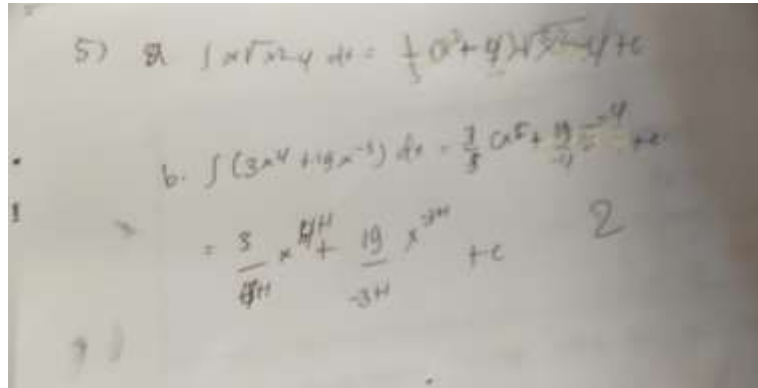 5) a ∫ x√x²-4 dx = 1/3 (x²+4)√x²-4 + c
b. ∫ (3x⁴ + 19x⁻³) dx = 3/5 x⁵ + 19/-4 x⁻⁴ + c
= 3/4+1 x⁴⁺¹ + 19/-3+1 x⁻³⁺¹ + c
2